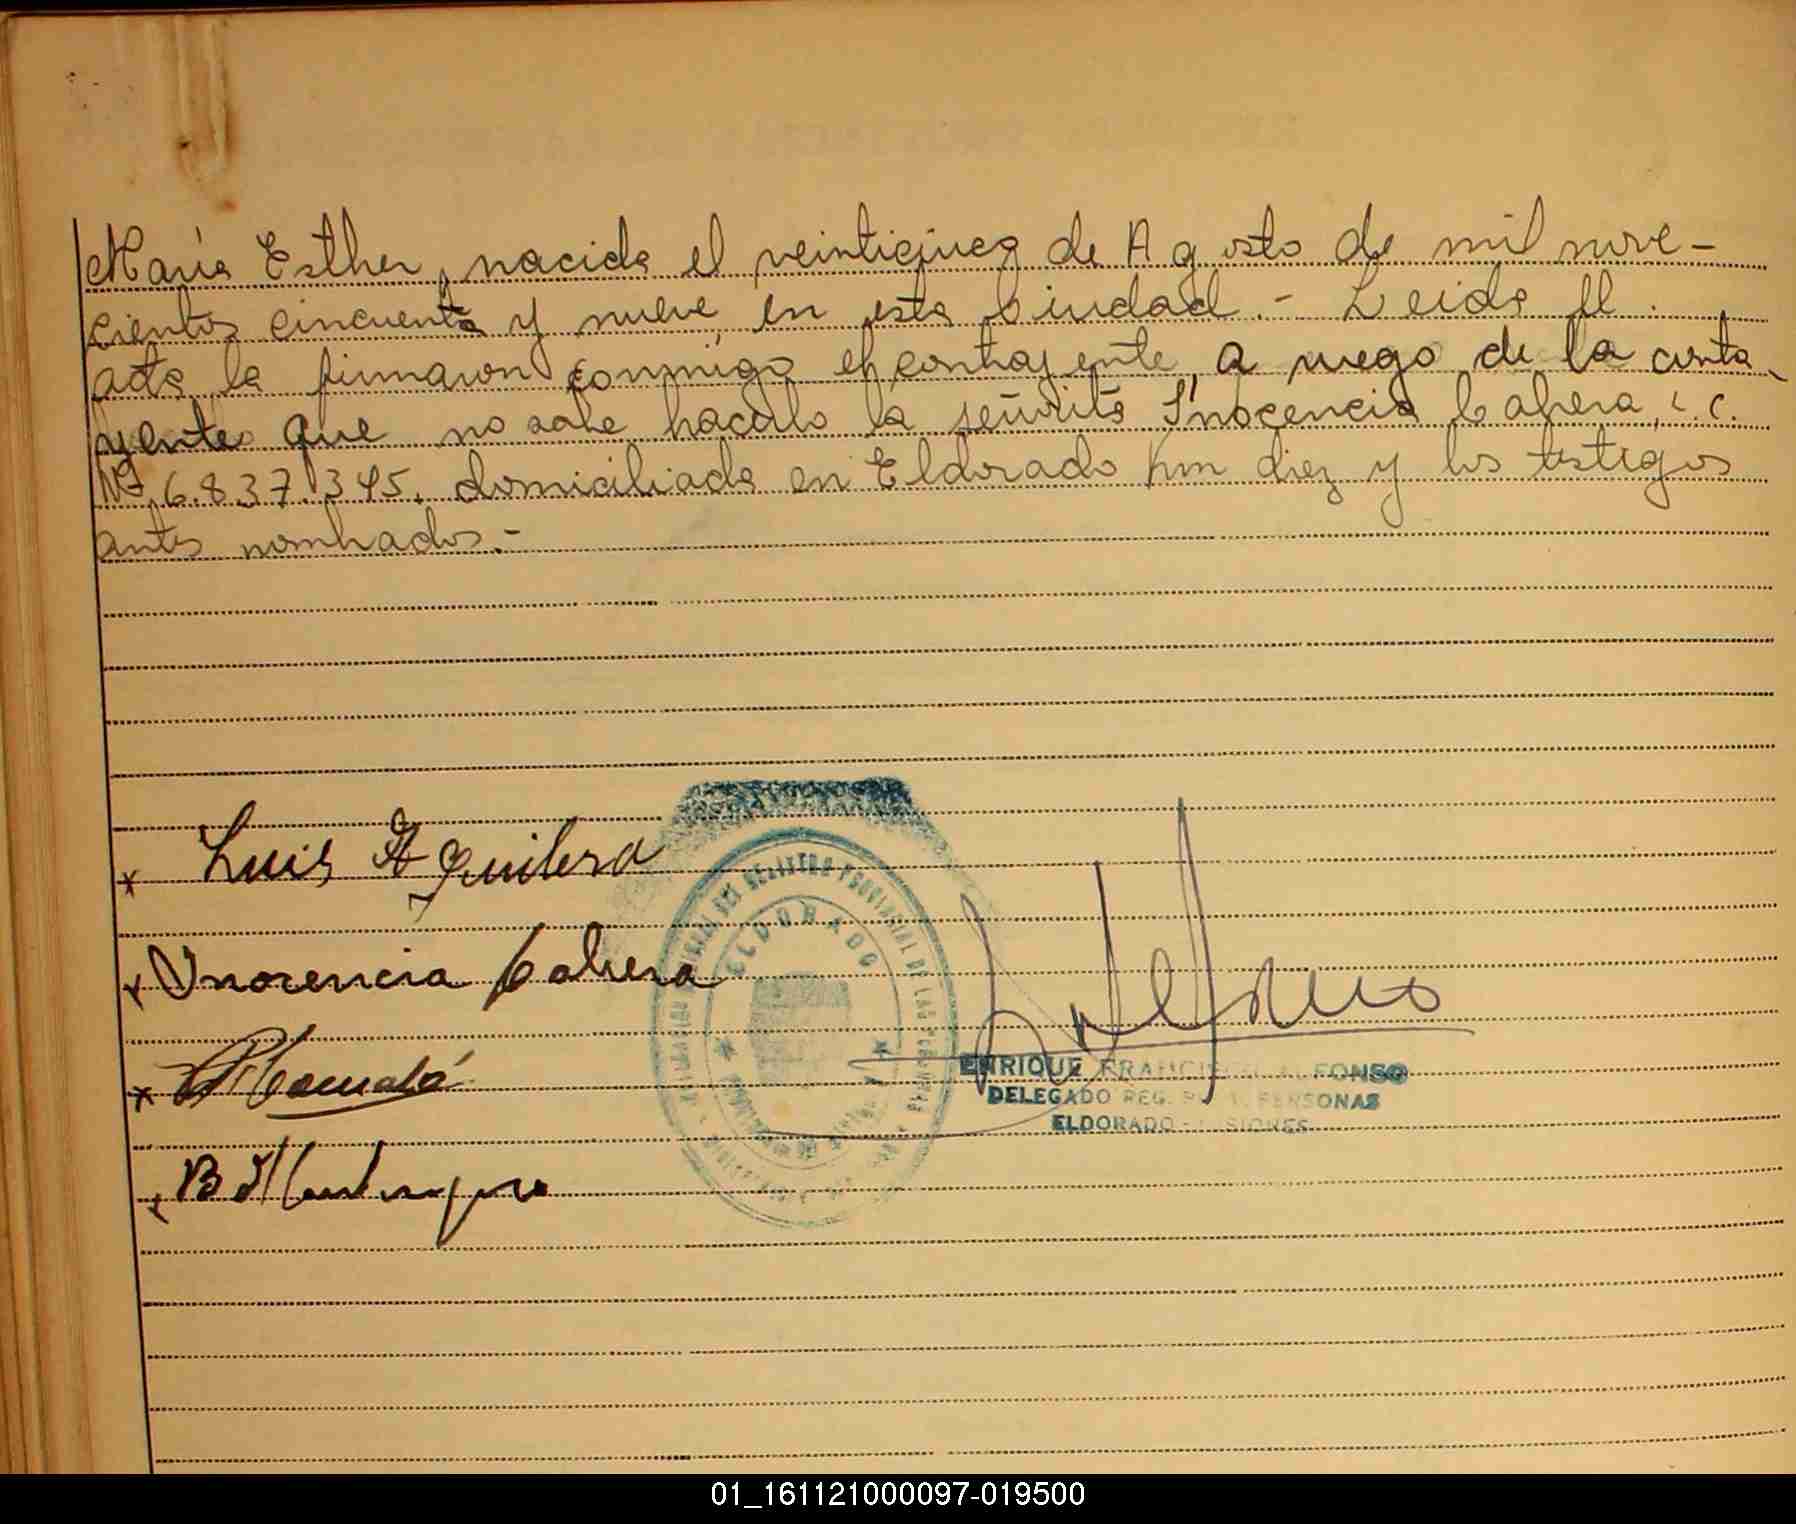 María Esther, nacida el veinticinco de Agosto de mil nove-
cientos cincuenta y nueve, en esta Ciudad.- Leida el
acta, la firmaron conmigo el contrayente, a ruego de la contra
yente que no sabe hacerlo la señorita Inocencia Cabrera, L.C.
Nº 6.837.345, domiciliada en Eldorado Km diez y los testigos
antes nombrados.-
x Luis Aguilera
x Inocencia Cabrera
x
x
ELDORADO
ENRIQUE FRANCISCO ALFONSO
DELEGADO REG. PERSONAS
ELDORADO - MISIONES
01_161121000097-019500